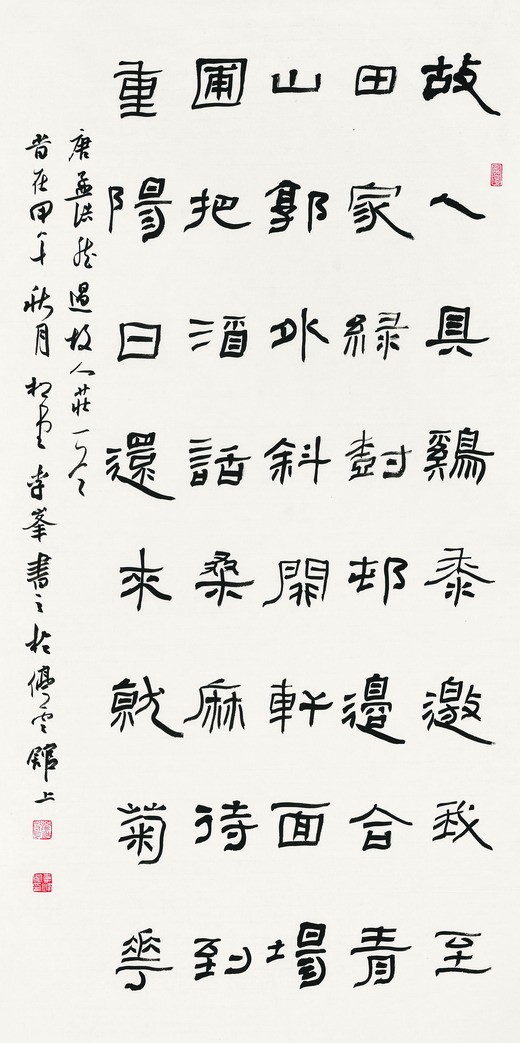 故人具鷄黍邀我至
田家緑尌邨邊合青
山郭外斜開軒面場
圃把酒話桑麻待到
重陽日還來就菊華
唐孟浩然過故人莊一首
旹在甲午秋月李峯書之於雲館上